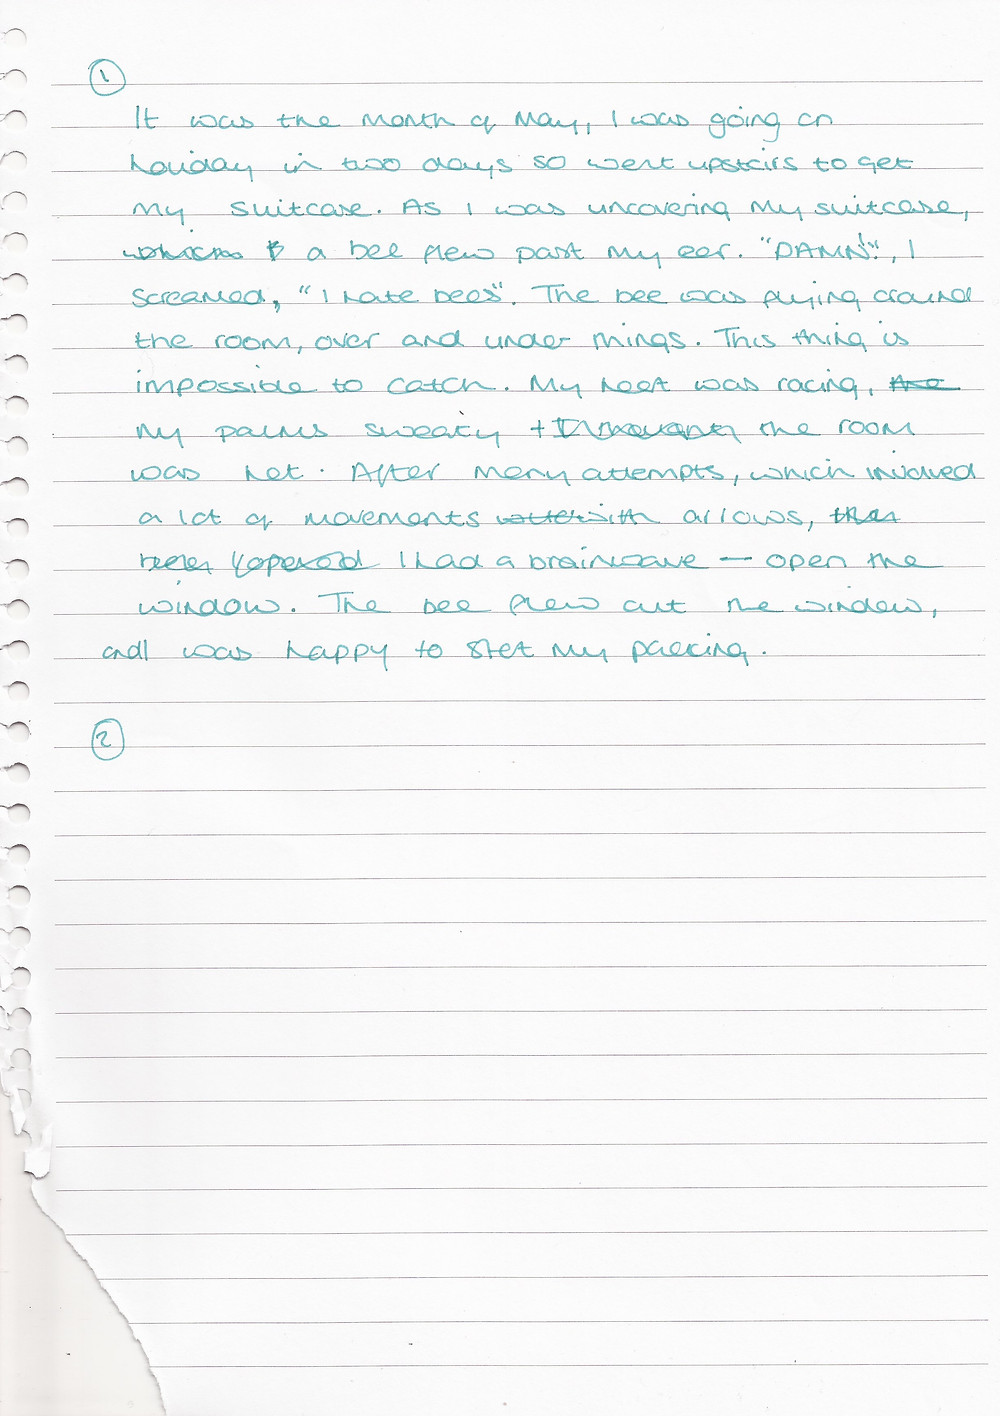 1
It was the month of May, I was going on
holiday in two days so went upstairs to get
my suitcase. As I was uncovering my suitcase,
a bee flew past my ear. "DAMN!", I
screamed, "I hate bees". The bee was flying around
the room, over and under things. This thing is
impossible to catch. My heart was racing,
my palms sweaty + the room
was hot. After many attempts, which involved
a lot of movements arrows,
I had a brainwave — open the
window. The bee flew out the window,
and I was happy to start my packing.
2